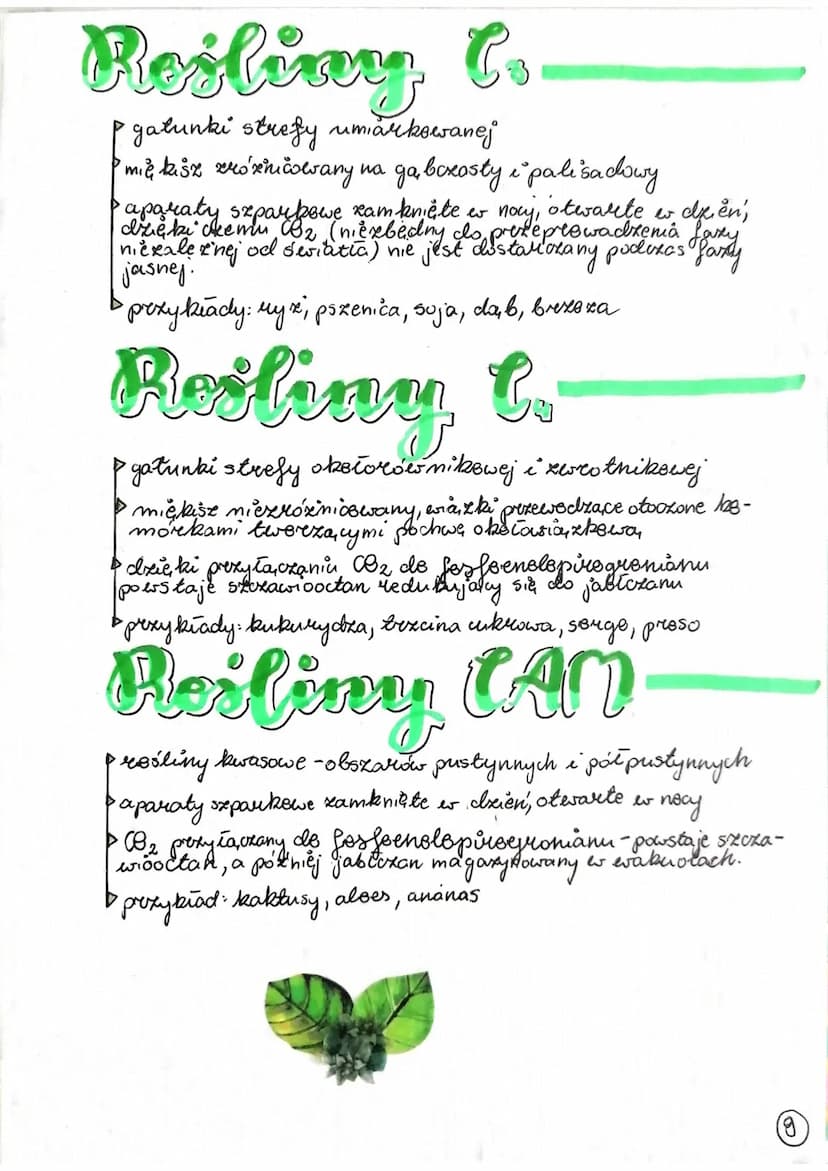 Rośliny C3
gatunki strefy umiarkowanej
miękisz zróżnicowany na gąbczasty i palisadowy
aparaty szparkowe zamknięte w nocy, otwarte w dzień,
dzięki czemu CO2 (niezbędny do przeprowadzenia fazy
niezależnej od światła) nie jest dostarczany podczas fazy
jasnej.
przykłady: ryż, pszenica, soja, dąb, brzoza
Rośliny C4
gatunki strefy okołorównikowej i zwrotnikowej
miękisz niezróżnicowany, wiązki przewodzące otoczone ko-
mórkami tworzącymi pochwę okołowiązkową
dzięki przyłączaniu CO2 do fosfoenolopirogronianu
powstaje szczawiooctan redukujący się do jabłczanu
przykłady: kukurydza, trzcina cukrowa, sorgo, proso
Rośliny CAM
rośliny kwasowe - obszarów pustynnych i półpustynnych
aparaty szparkowe zamknięte w dzień, otwarte w nocy
CO2 przyłączany do fosfoenolopirogronianu - powstaje szcza-
wiooctan, a później jabłczan magazynowany w wakuolach.
przykład: kaktusy, aloes, ananas
9